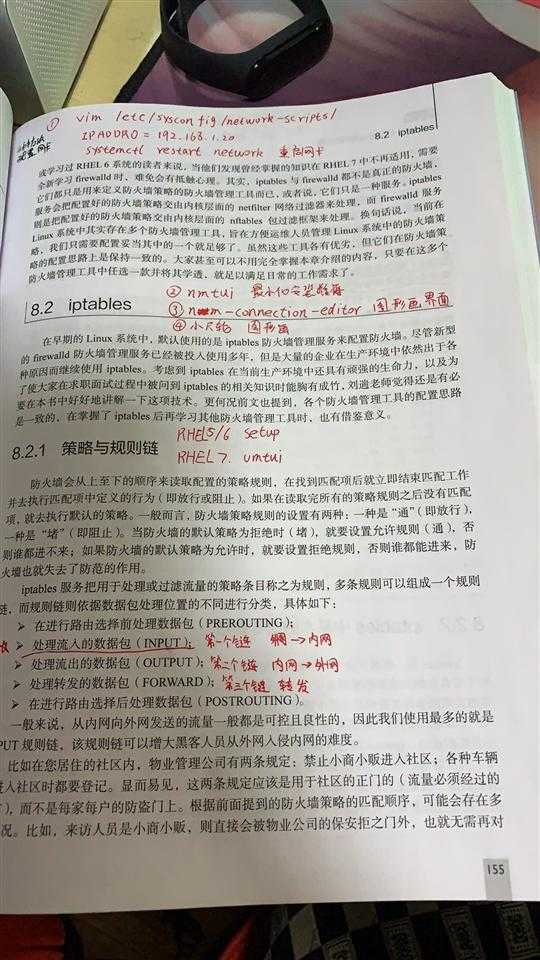 ① vim /etc/sysconfig/network-scripts/
IPADDR0 = 192.168.1.20
systemctl restart network 重启网卡
8.2 iptables
或学习过 RHEL 6 系统的读者来说，当他们发现曾经掌握的知识在 RHEL 7 中不再适用，需要
全新学习 firewalld 时，难免会有抵触心理。其实，iptables 与 firewalld 都不是真正的防火墙，
它们都只是用来定义防火墙策略的防火墙管理工具而已，或者说，它们只是一种服务。iptables
服务会把配置好的防火墙策略交由内核层面的 netfilter 网络过滤器来处理，而 firewalld 服务
则是把配置好的防火墙策略交由内核层面的 nftables 包过滤框架来处理。换句话说，当前在
Linux 系统中其实存在多个防火墙管理工具，旨在方便运维人员管理 Linux 系统中的防火墙策
略，我们只需要配置妥当其中的一个就足够了。虽然这些工具各有优劣，但它们在防火墙策
略的配置思路上是保持一致的。大家甚至可以不用完全掌握本章介绍的内容，只要在这多个
防火墙管理工具中任选一款并将其学透，就足以满足日常的工作需求了。
② nmtui 最小化安装
8.2 iptables
③ nm-connection-editor 图形画界面
④ 小尺轮 图形画
在早期的 Linux 系统中，默认使用的是 iptables 防火墙管理服务来配置防火墙。尽管新型
的 firewalld 防火墙管理服务已经被投入使用多年，但是大量的企业在生产环境中依然出于各
种原因而继续使用 iptables。考虑到 iptables 在当前生产环境中还具有顽强的生命力，以及为
了使大家在求职面试过程中被问到 iptables 的相关知识时能胸有成竹，刘遄老师觉得还是有必
要在本书中好好地讲解一下这项技术。更何况前文也提到，各个防火墙管理工具的配置思路
是一致的，在掌握了 iptables 后再学习其他防火墙管理工具时，也有借鉴意义。
RHEL5/6 setup
8.2.1 策略与规则链
RHEL7. umtui
防火墙会从上至下的顺序来读取配置的策略规则，在找到匹配项后就立即结束匹配工作
并去执行匹配项中定义的行为（即放行或阻止）。如果在读取完所有的策略规则之后没有匹配
项，就去执行默认的策略。一般而言，防火墙策略规则的设置有两种：一种是“通”（即放行），
一种是“堵”（即阻止）。当防火墙的默认策略为拒绝时（堵），就要设置允许规则（通），否
则谁都进不来；如果防火墙的默认策略为允许时，就要设置拒绝规则，否则谁都能进来，防
火墙也就失去了防范的作用。
iptables 服务把用于处理或过滤流量的策略条目称之为规则，多条规则可以组成一个规则
链，而规则链则依据数据包处理位置的不同进行分类，具体如下：
➢ 在进行路由选择前处理数据包（PREROUTING）；
➢ 处理流入的数据包（INPUT）； 第一个链 →内网
➢ 处理流出的数据包（OUTPUT）； 第二个链 内网→外网
➢ 处理转发的数据包（FORWARD）； 第三个链 转发
➢ 在进行路由选择后处理数据包（POSTROUTING）。
一般来说，从内网向外网发送的流量一般都是可控且良性的，因此我们使用最多的就是
PUT 规则链，该规则链可以增大黑客人员从外网入侵内网的难度。
比如在您居住的社区内，物业管理公司有两条规定：禁止小商小贩进入社区；各种车辆
进入社区时都要登记。显而易见，这两条规定应该是用于社区的正门的（流量必须经过的
），而不是每家每户的防盗门上。根据前面提到的防火墙策略的匹配顺序，可能会存在多
况。比如，来访人员是小商小贩，则直接会被物业公司的保安拒之门外，也就无需再对
155